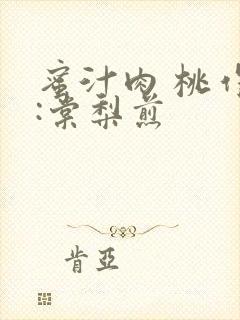 蜜汁肉桃作
:棠梨煎
肯亞